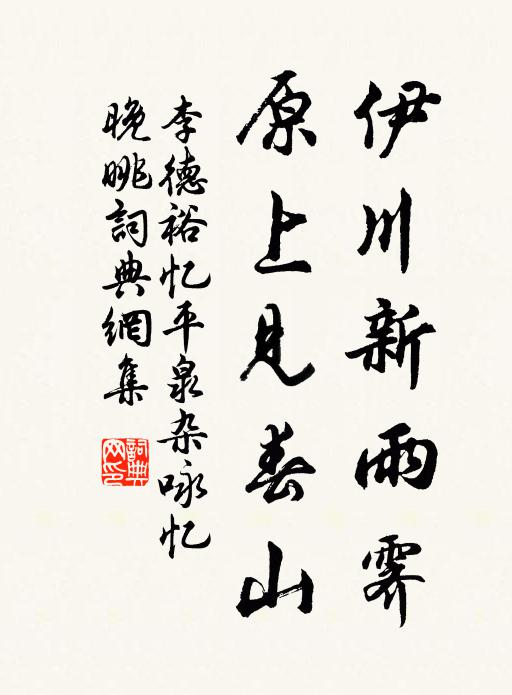 伊川新雨霽
原上見春山
李德裕忆平泉杂咏忆
晚眺詞典網集
詞典网印